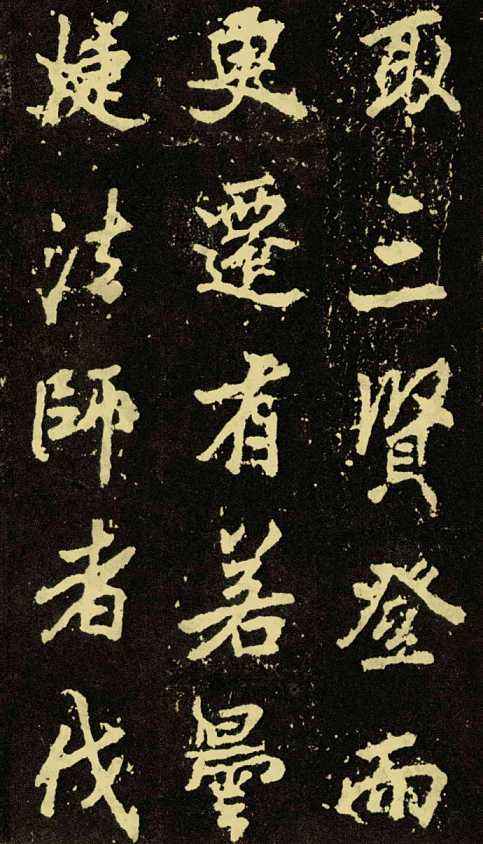 取三賢登而
更遷有若曇
捷法師者伐